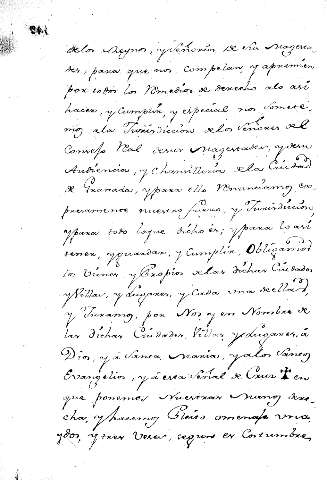 delos Reynos, y Señorios de sus Magesta
des, para que nos compelan, y apremien
por todos los Remedios de derecho alo asi
hacer, y Cumplir, y especial nos somete
mos ala Jurisdiccion delos Señores del
Consejo Real de sus Magestades, y de su
Audiencia, y Chancilleria de la Ciudad
de Granada, y para ello Renunciamos ex
presamente nuestro fuero, y Jurisdiccion
y para todo loque dicho es; y para lo asi
tener, y guardar, y Cumplir, Obligamos
los vienes y Propios delas dichas Ciudades
y Villas, y Lugares, y Cada una de ellas
y Juramos, por Nos y en Nombre de
las dichas Ciudades, Villas, y Lugares, à
Dios, y à Santa Maria, y alos Santos
Evangelios, y à esta Señal de Cruz ✝ en
que ponemos Nuestras Manos dere
chas, y hacemos Pleito omenaje una
y dos, y tres Veces, segun es Costumbre